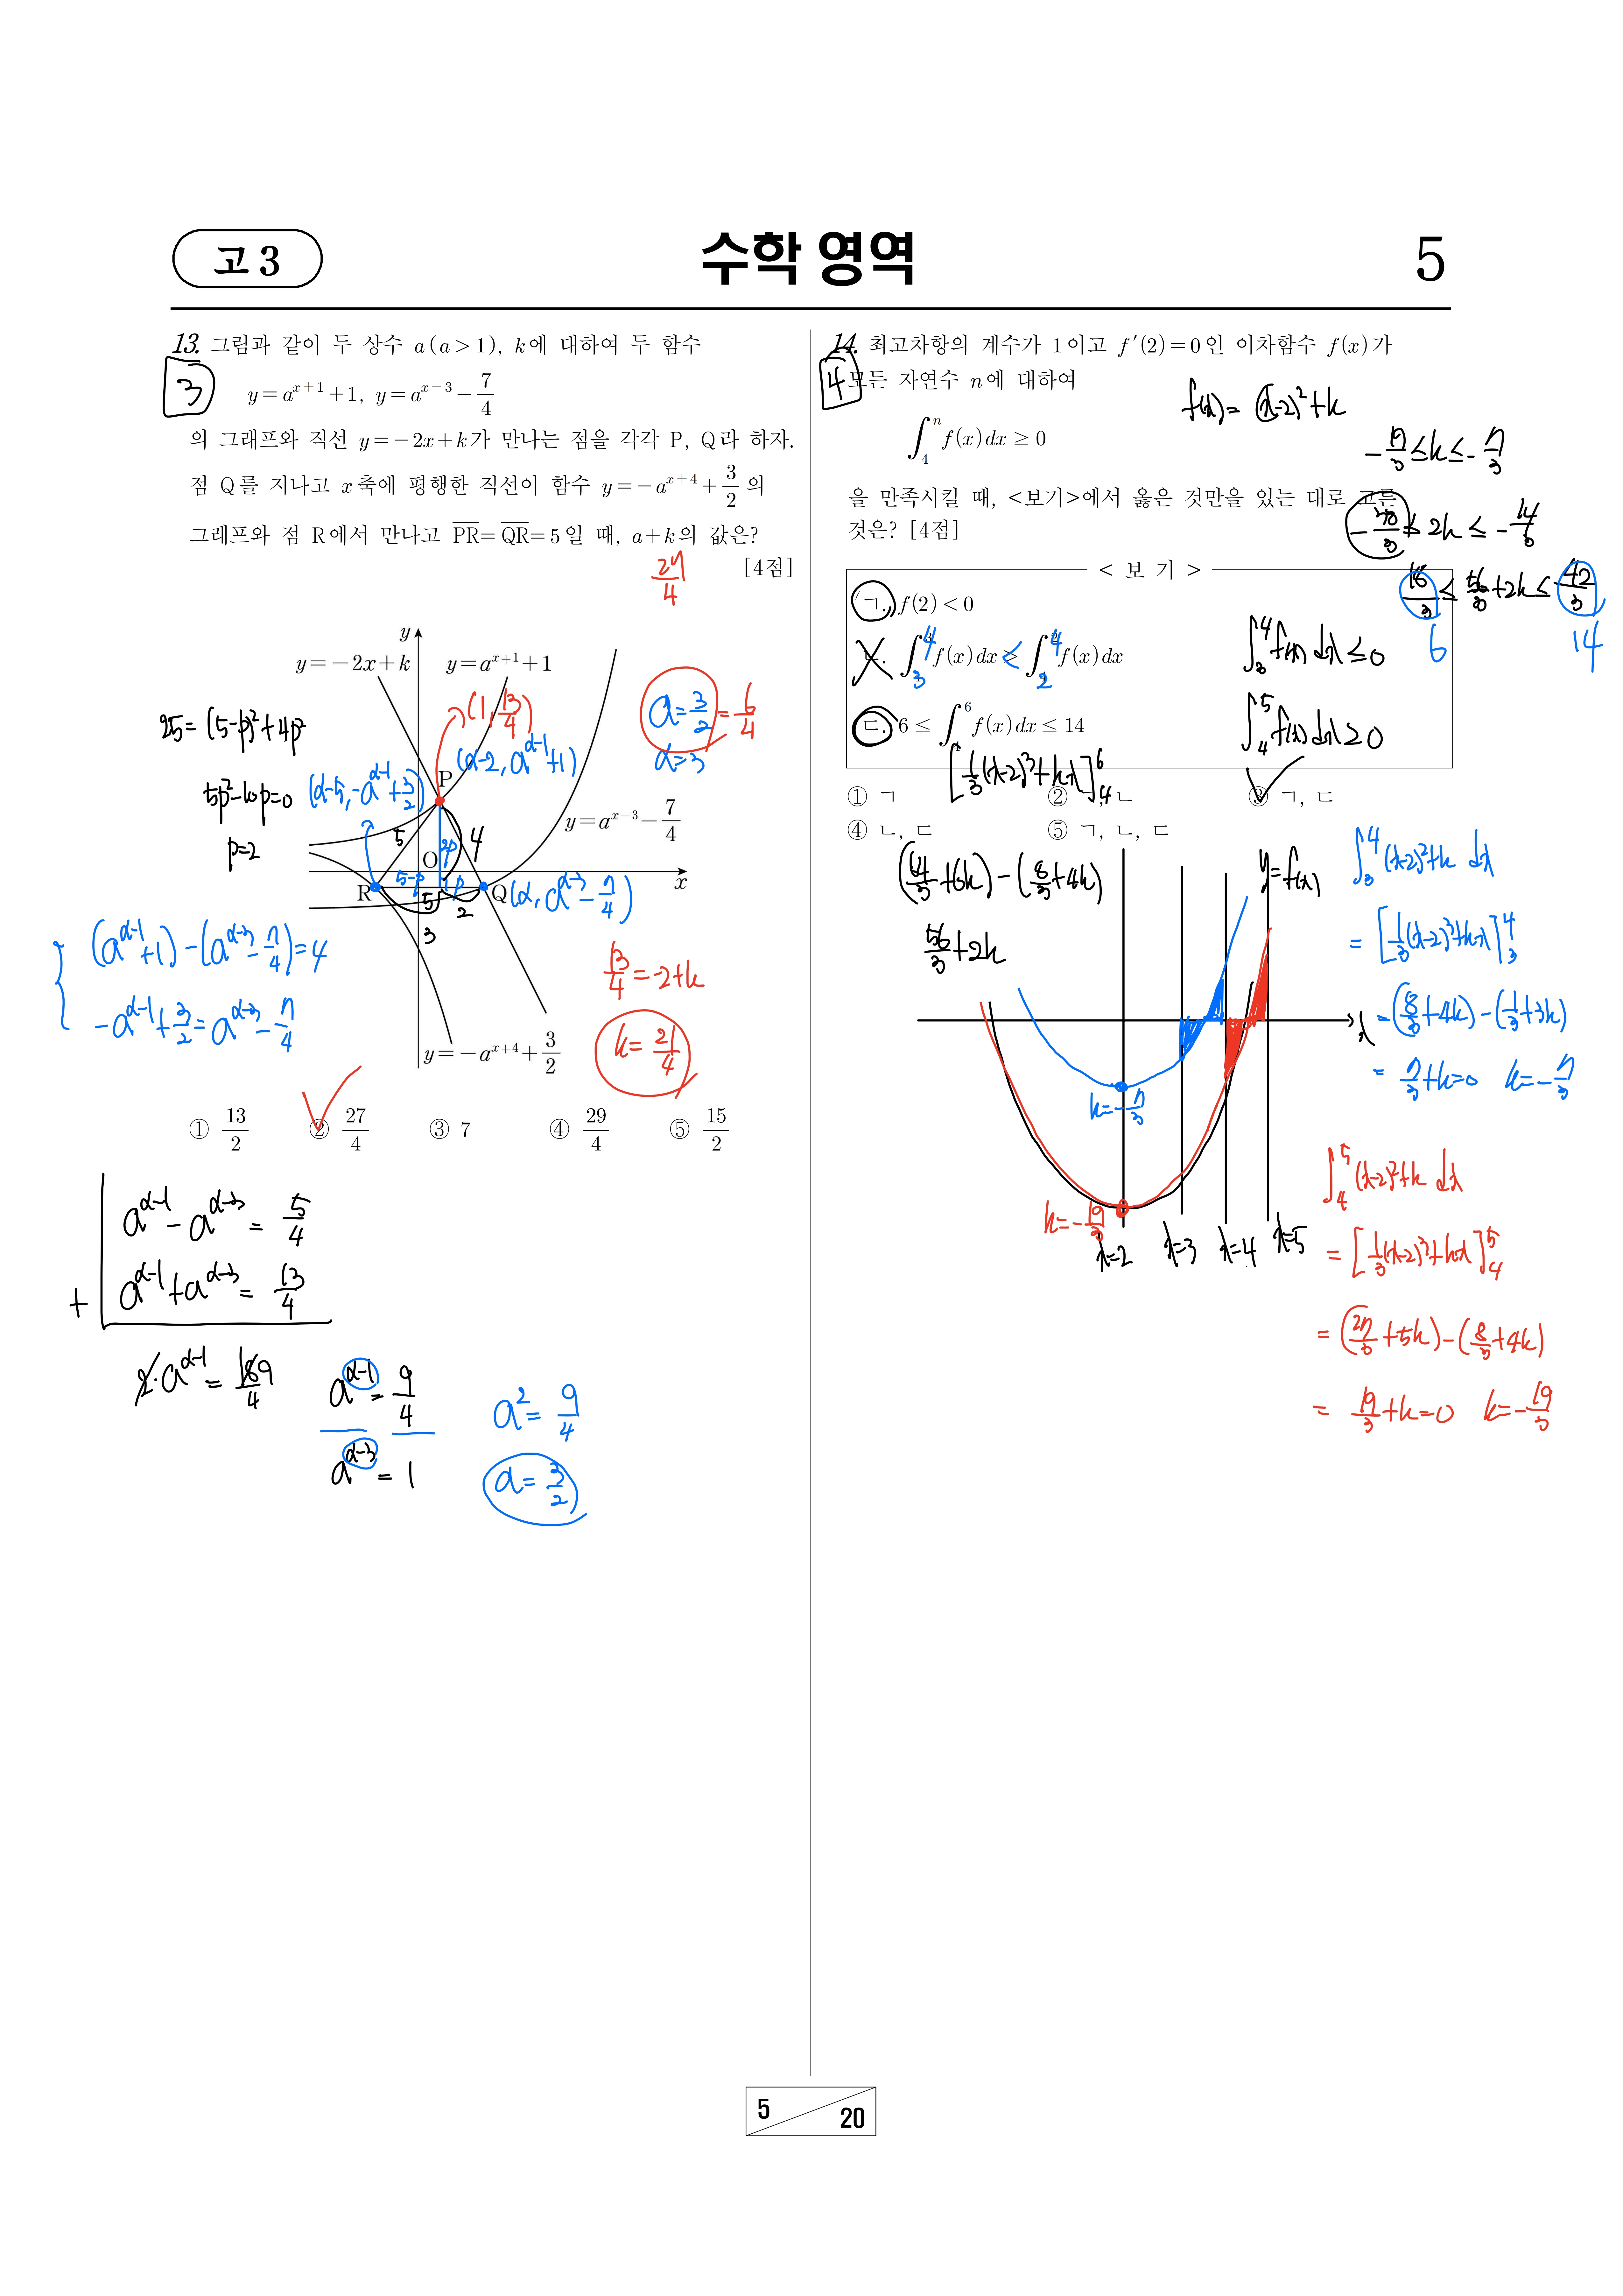 고 3
수학 영역
5
13. 그림과 같이 두 상수 a (a > 1), k에 대하여 두 함수
3
y = a^{x+1} + 1, y = a^{x-3} - 7/4
의 그래프와 직선 y = -2x + k가 만나는 점을 각각 P, Q라 하자.
점 Q를 지나고 x축에 평행한 직선이 함수 y = -a^{x+4} + 3/2 의
그래프와 점 R에서 만나고 PR = QR = 5일 때, a + k의 값은?
[4점]
27/4
y
y = -2x + k
y = a^{x+1} + 1
(1, 13/4)
a = 3/2 = 6/4
α = 3
25 = (5-p)² + 4p²
5p² - 10p = 0
p = 2
(α-2, a^{α-1} + 1)
P
(α-5, -a^{α-1} + 3/2)
y = a^{x-3} - 7/4
5
4
2p
O
x
5-p
p
R
Q
(α, a^{α-3} - 7/4)
5
2
3
(a^{α-1} + 1) - (a^{α-3} - 7/4) = 4
-a^{α-1} + 3/2 = a^{α-3} - 7/4
13/4 = -2 + k
k = 21/4
y = -a^{x+4} + 3/2
① 13/2 ② 27/4 ③ 7 ④ 29/4 ⑤ 15/2
a^{α-1} - a^{α-3} = 5/4
+ a^{α-1} + a^{α-3} = 13/4
2·a^{α-1} = 18/4 9
a^{α-1} = 9/4
a^{α-3} = 1
a² = 9/4
a = 3/2
14. 최고차항의 계수가 1이고 f′(2) = 0인 이차함수 f(x)가
4
모든 자연수 n에 대하여
f(x) = (x-2)² + k
∫_4^n f(x)dx ≥ 0
-19/3 ≤ k ≤ -7/3
을 만족시킬 때, <보기>에서 옳은 것만을 있는 대로 고른
것은? [4점]
-38/3 ≤ 2k ≤ -14/3
18/3 ≤ 56/3 + 2k ≤ 42/3
6
14
< 보 기 >
ㄱ. f(2) < 0
ㄴ. ∫_4^3 f(x)dx > ∫_4^2 f(x)dx
4
3
<
4
2
∫_3^4 f(x)dx ≤ 0
ㄷ. 6 ≤ ∫_4^6 f(x)dx ≤ 14
∫_4^5 f(x)dx ≥ 0
[1/3(x-2)³ + kx]_4^6
① ㄱ ② ㄴ ③ ㄱ, ㄷ
④ ㄴ, ㄷ ⑤ ㄱ, ㄴ, ㄷ
(64/3 + 6k) - (8/3 + 4k)
56/3 + 2k
y = f(x)
x
k = -7/3
k = -19/3
x=2
x=3
x=4
x=5
∫_3^4 (x-2)² + k dx
= [1/3(x-2)³ + kx]_3^4
= (8/3 + 4k) - (1/3 + 3k)
= 7/3 + k = 0 k = -7/3
∫_4^5 (x-2)² + k dx
= [1/3(x-2)³ + kx]_4^5
= (27/3 + 5k) - (8/3 + 4k)
= 19/3 + k = 0 k = -19/3
5
20